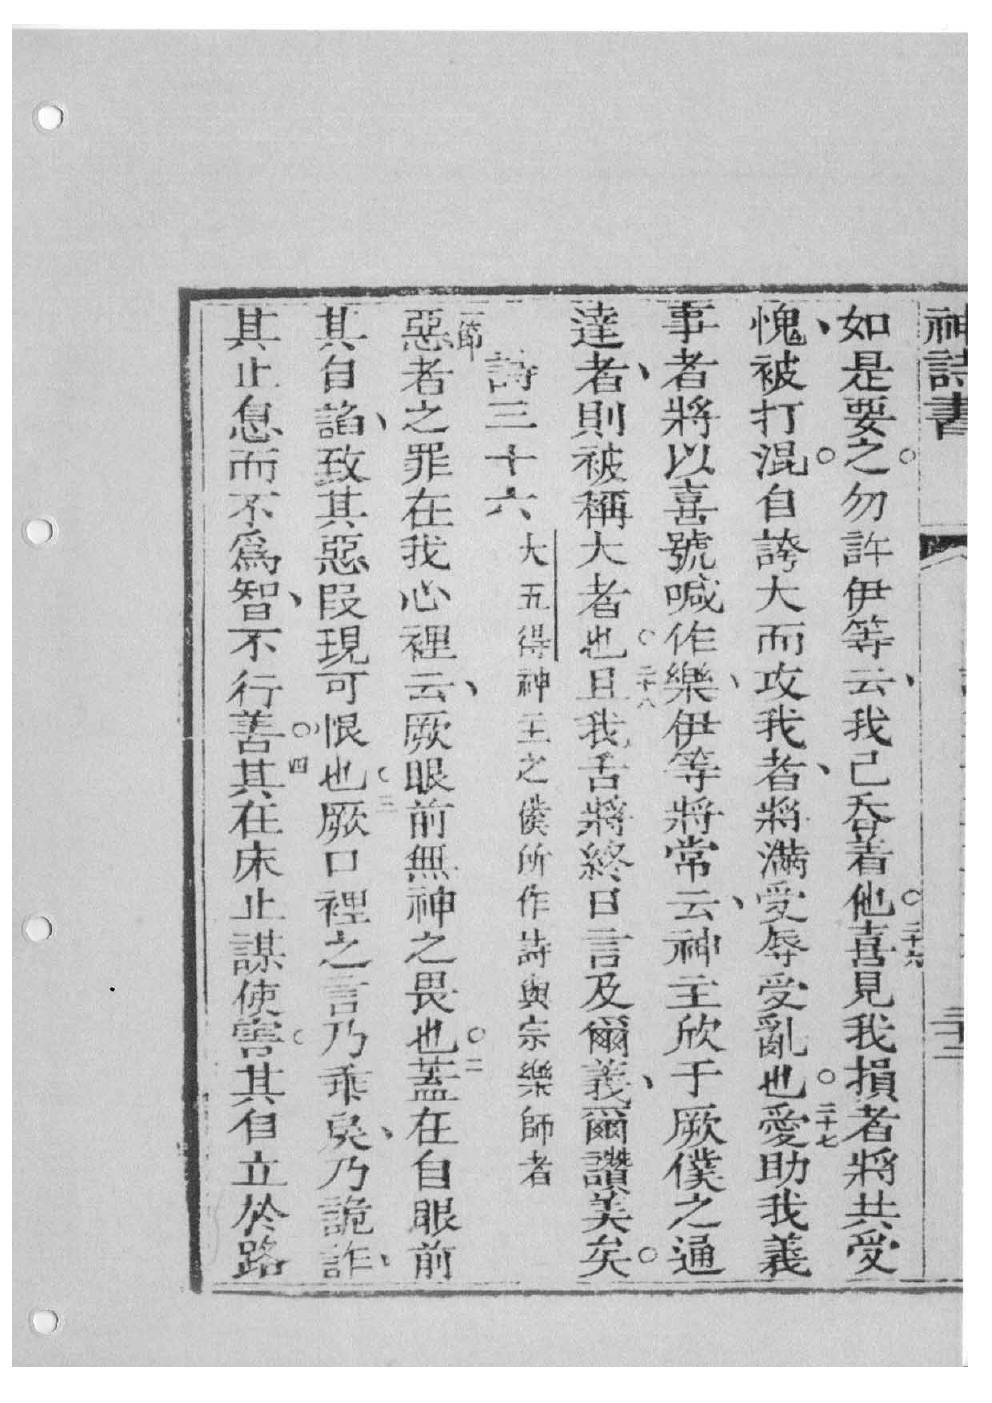 神詩書
如是要之。勿許伊等云、我已吞着他。二十六喜見我損者將共受
愧、被打混。自誇大而攻我者、將滿受辱受亂也。二十七愛助我義
事者將以喜號喊作樂、伊等將常云、神主欣于厥僕之通
達者、則被稱大者也。二十八且我舌將終日言及爾義、爾讚美矣。
詩三十六 大五得神主之僕所作詩與宗樂師者
一節惡者之罪在我心裡云、厥眼前無神之畏也。二蓋在自眼前
其自諂、致其惡段現可恨也。三厥口裡之言乃乖戾、乃詭詐、
其止息而不為智、不行善。四其在床止謀使害。其自立於路